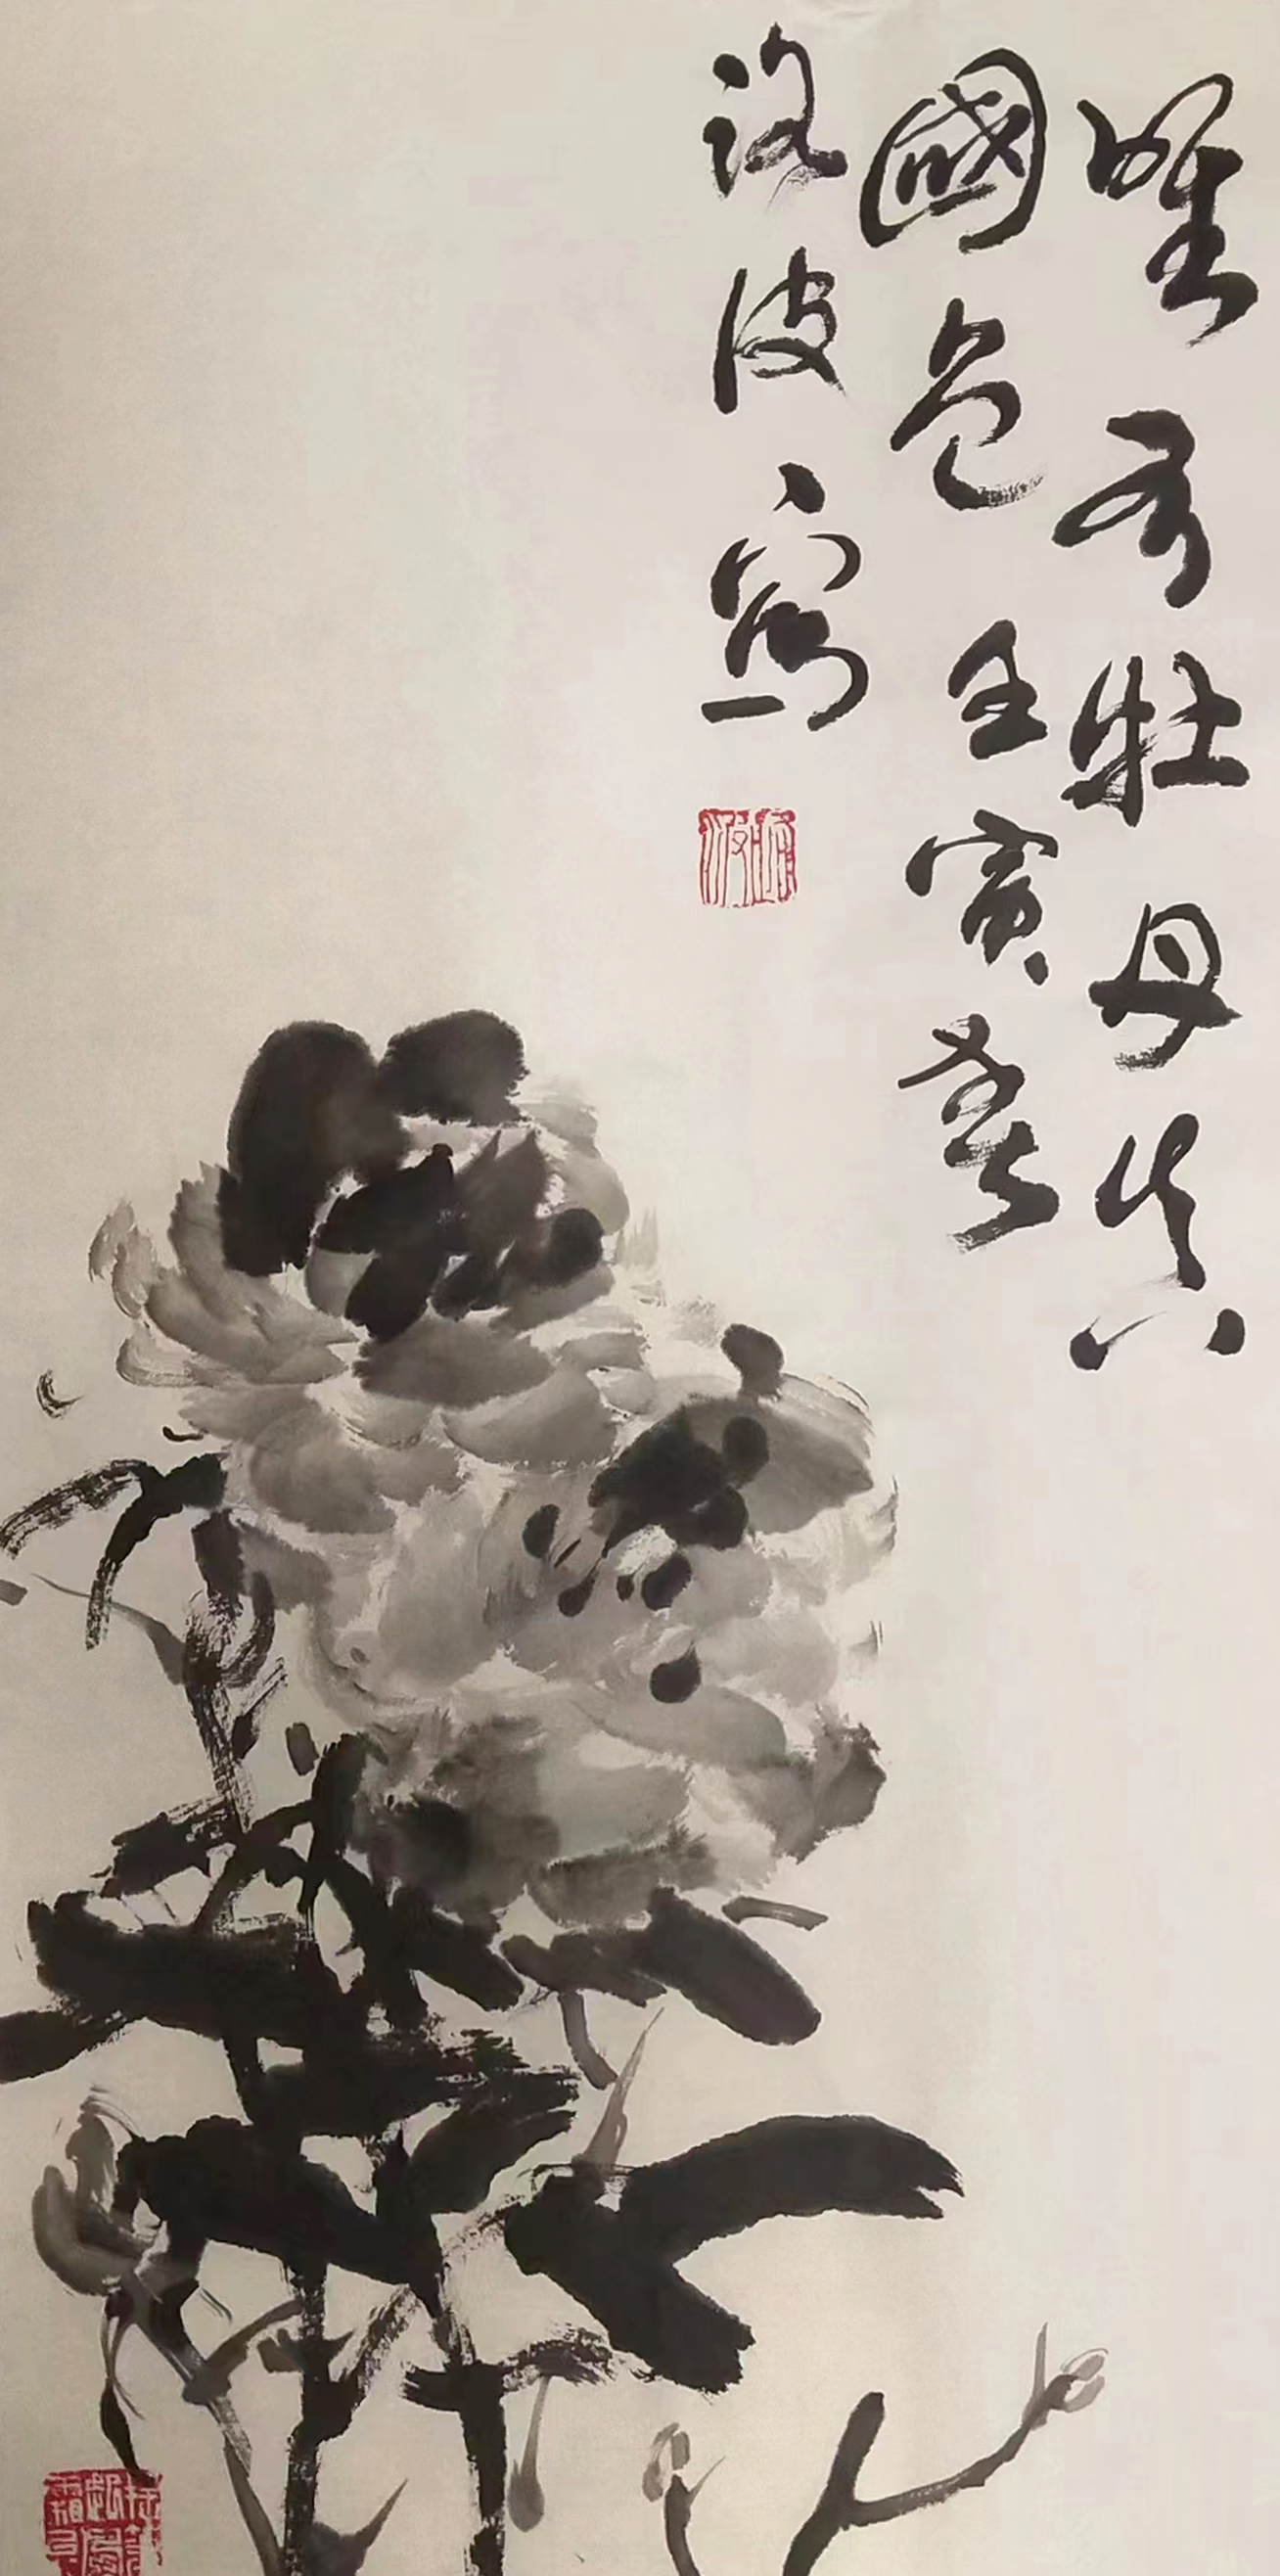 唯有牡丹真
國色壬寅春
波寫